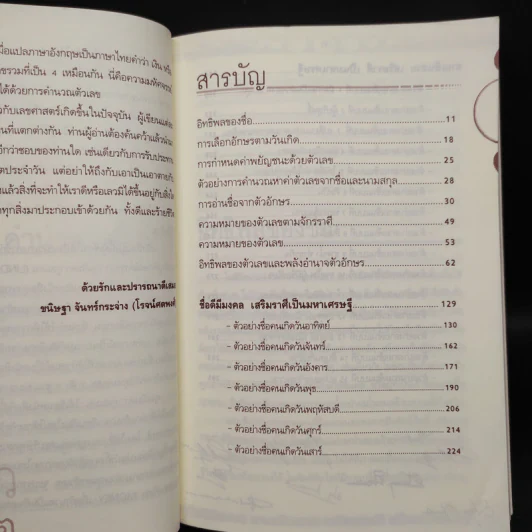 มื่อแปลภาษาอังกฤษเป็นภาษาไทยคำว่า เงิน หรือ
ขรวมที่เป็น 4 เหมือนกัน นี่คือความมหัศจรรย์
ได้ด้วยการคำนวณตัวเลข
กับเลขศาสตร์เกิดขึ้นในปัจจุบัน ผู้เขียนแต่ละ
นที่แตกต่างกัน ท่านผู้อ่านต้องค้นคว้าแล้วนำ
ยึกว่าชอบของท่านใด เช่นเดียวกับการรับประทาน
ตประจำวัน แต่อย่าให้ถึงกับเอาเป็นเอาตายกับ
แล้วสิ่งที่จะทำให้เราดีหรือเลวมิได้ขึ้นอยู่กับสิ่งใด
ทุกสิ่งมาประกอบเข้าด้วยกัน ทั้งดีและร้ายชีวิต
ด้วยรักและปรารถนาดีเสมอ
ชนิษฐา จันทร์กระจ่าง
สารบัญ
อิทธิพลของชื่อ 11
การเลือกอักษรตามวันเกิด 18
การกำหนดค่าพยัญชนะด้วยตัวเลข 25
ตัวอย่างการคำนวณหาค่าตัวเลขจากชื่อและนามสกุล 28
การอ่านชื่อจากตัวอักษร 30
ความหมายของตัวเลขตามจักรราศี 49
ความหมายของตัวเลข 53
อิทธิพลของตัวเลขและพลังอำนาจตัวอักษร 62
ชื่อดีมีมงคล เสริมราศีเป็นมหาเศรษฐี 129
- ตัวอย่างชื่อคนเกิดวันอาทิตย์ 130
- ตัวอย่างชื่อคนเกิดวันจันทร์ 162
- ตัวอย่างชื่อคนเกิดวันอังคาร 171
- ตัวอย่างชื่อคนเกิดวันพุธ 190
- ตัวอย่างชื่อคนเกิดวันพฤหัสบดี 206
- ตัวอย่างชื่อคนเกิดวันศุกร์ 214
- ตัวอย่างชื่อคนเกิดวันเสาร์ 224